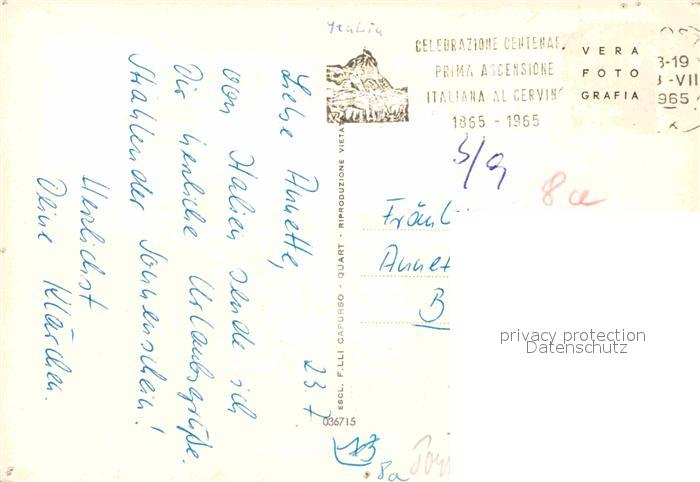 Italia
CELEBRAZIONE CENTENAR
PRIMA ASCENSIONE
ITALIANA AL CERVINO
1865 - 1965
VERA
FOTO
GRAFIA
3-19
VII
1965
ESCL. F.LLI CAPURSO - QUART - RIPRODUZIONE VIETATA
036715
23.7
Liebe Annette,
von Italien sende ich
Dir herzliche Urlaubsgrüße.
Strahlender Sonnenschein!
Herzlichst
Deine Klärchen.
5/9
8a
Fräul
Annet
B
8a
privacy protection
Datenschutz